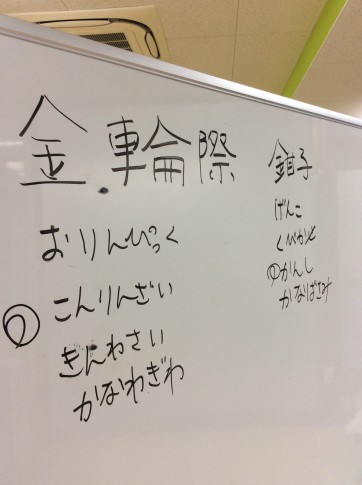 金輪際
おりんぴっく
こんりんざい
きんわさい
かなわぎわ
鉗子
げんこ
くびかせ
かんし
かなばさみ